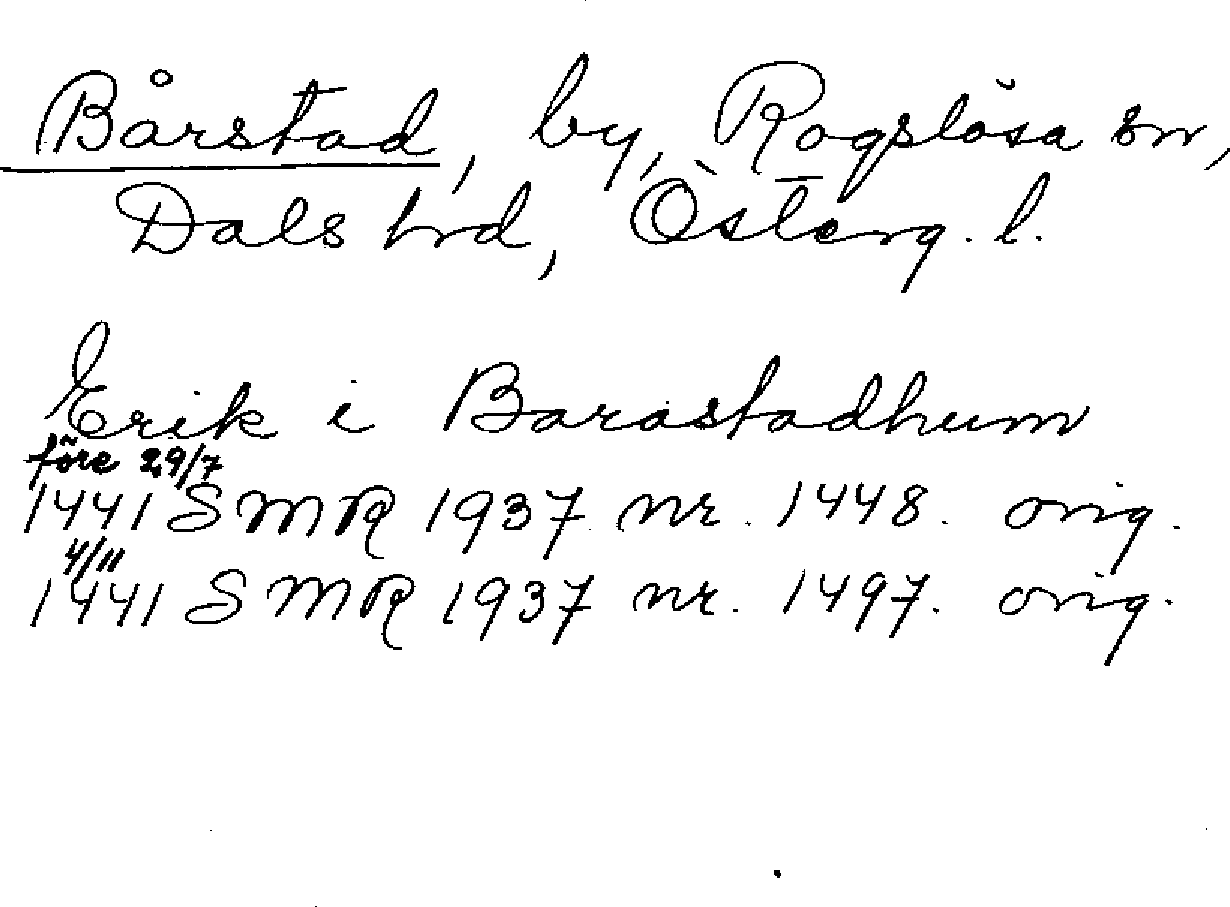 Bårstad, by, Rogslösa sn,
Dals hd, Österg. l.
Erik i Barastadhum
före 29/7
1441 SMR 1937 nr. 1448. orig.
4/11
1441 SMR 1937 nr. 1497. orig.